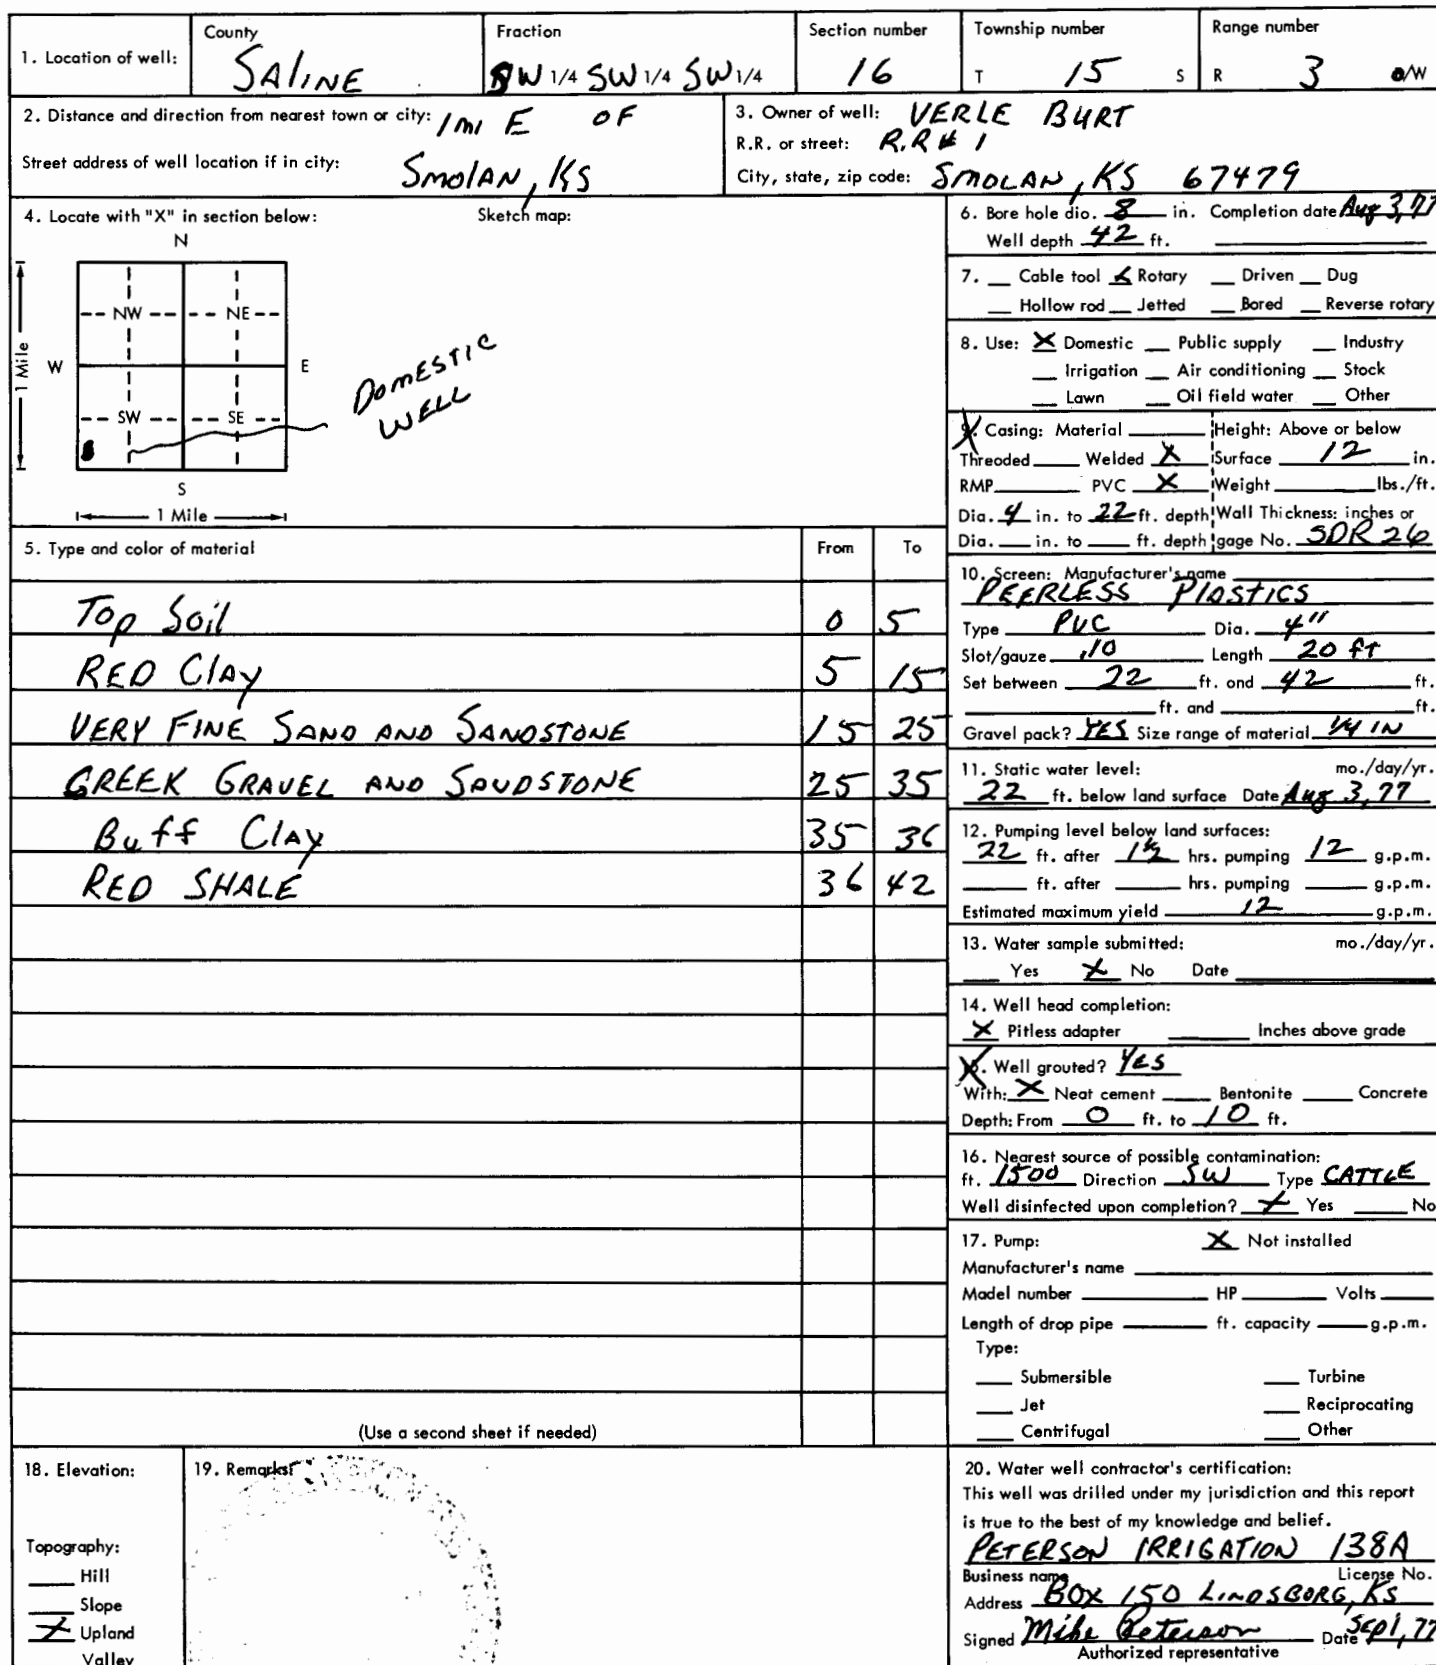 1. Location of well:
County
SALINE
Fraction
SW 1/4 SW 1/4 SW 1/4
Section number
16
Township number
T 15 S
Range number
R 3 E/W
2. Distance and direction from nearest town or city: 1 mi E OF
Street address of well location if in city: SmolAN, KS
3. Owner of well: VERLE BURT
R.R. or street: R.R # 1
City, state, zip code: SMOLAN, KS 67479
4. Locate with "X" in section below:
Sketch map:
N
NW NE
1 Mile
W E
SW SE
S
1 Mile
DOMESTIC
WELL
5. Type and color of material From To
Top Soil 0 5
RED Clay 5 15
VERY FINE SAND AND SANDSTONE 15 25
CREEK GRAVEL AND SANDSTONE 25 35
Buff Clay 35 36
RED SHALE 36 42
(Use a second sheet if needed)
6. Bore hole dia. 8 in. Completion date Aug 3, 77
Well depth 42 ft.
7. Cable tool X Rotary Driven Dug
Hollow rod Jetted Bored Reverse rotary
8. Use: X Domestic Public supply Industry
Irrigation Air conditioning Stock
Lawn Oil field water Other
9. Casing: Material Height: Above or below
Threaded Welded X Surface 12 in.
RMP PVC X Weight lbs./ft.
Dia. 4 in. to 22 ft. depth Wall Thickness: inches or
Dia. in. to ft. depth gage No. SDR 26
10. Screen: Manufacturer's name
PEERLESS PlASTICS
Type PVC Dia. 4"
Slot/gauze .10 Length 20 ft
Set between 22 ft. and 42 ft.
ft. and ft.
Gravel pack? YES Size range of material 1/4 IN
11. Static water level: mo./day/yr.
22 ft. below land surface Date Aug 3, 77
12. Pumping level below land surfaces:
22 ft. after 1 1/2 hrs. pumping 12 g.p.m.
ft. after hrs. pumping g.p.m.
Estimated maximum yield 12 g.p.m.
13. Water sample submitted: mo./day/yr.
Yes X No Date
14. Well head completion:
X Pitless adapter Inches above grade
15. Well grouted? YES
With: X Neat cement Bentonite Concrete
Depth: From 0 ft. to 10 ft.
16. Nearest source of possible contamination:
ft. 1500 Direction SW Type CATTLE
Well disinfected upon completion? X Yes No
17. Pump: X Not installed
Manufacturer's name
Model number HP Volts
Length of drop pipe ft. capacity g.p.m.
Type:
Submersible Turbine
Jet Reciprocating
Centrifugal Other
18. Elevation:
Topography:
Hill
Slope
X Upland
Valley
19. Remarks:
20. Water well contractor's certification:
This well was drilled under my jurisdiction and this report
is true to the best of my knowledge and belief.
PETERSON IRRIGATION 138A
Business name License No.
Address BOX 150 LINDSBORG, KS
Signed Mike Peterson Date Sep 1, 77
Authorized representative